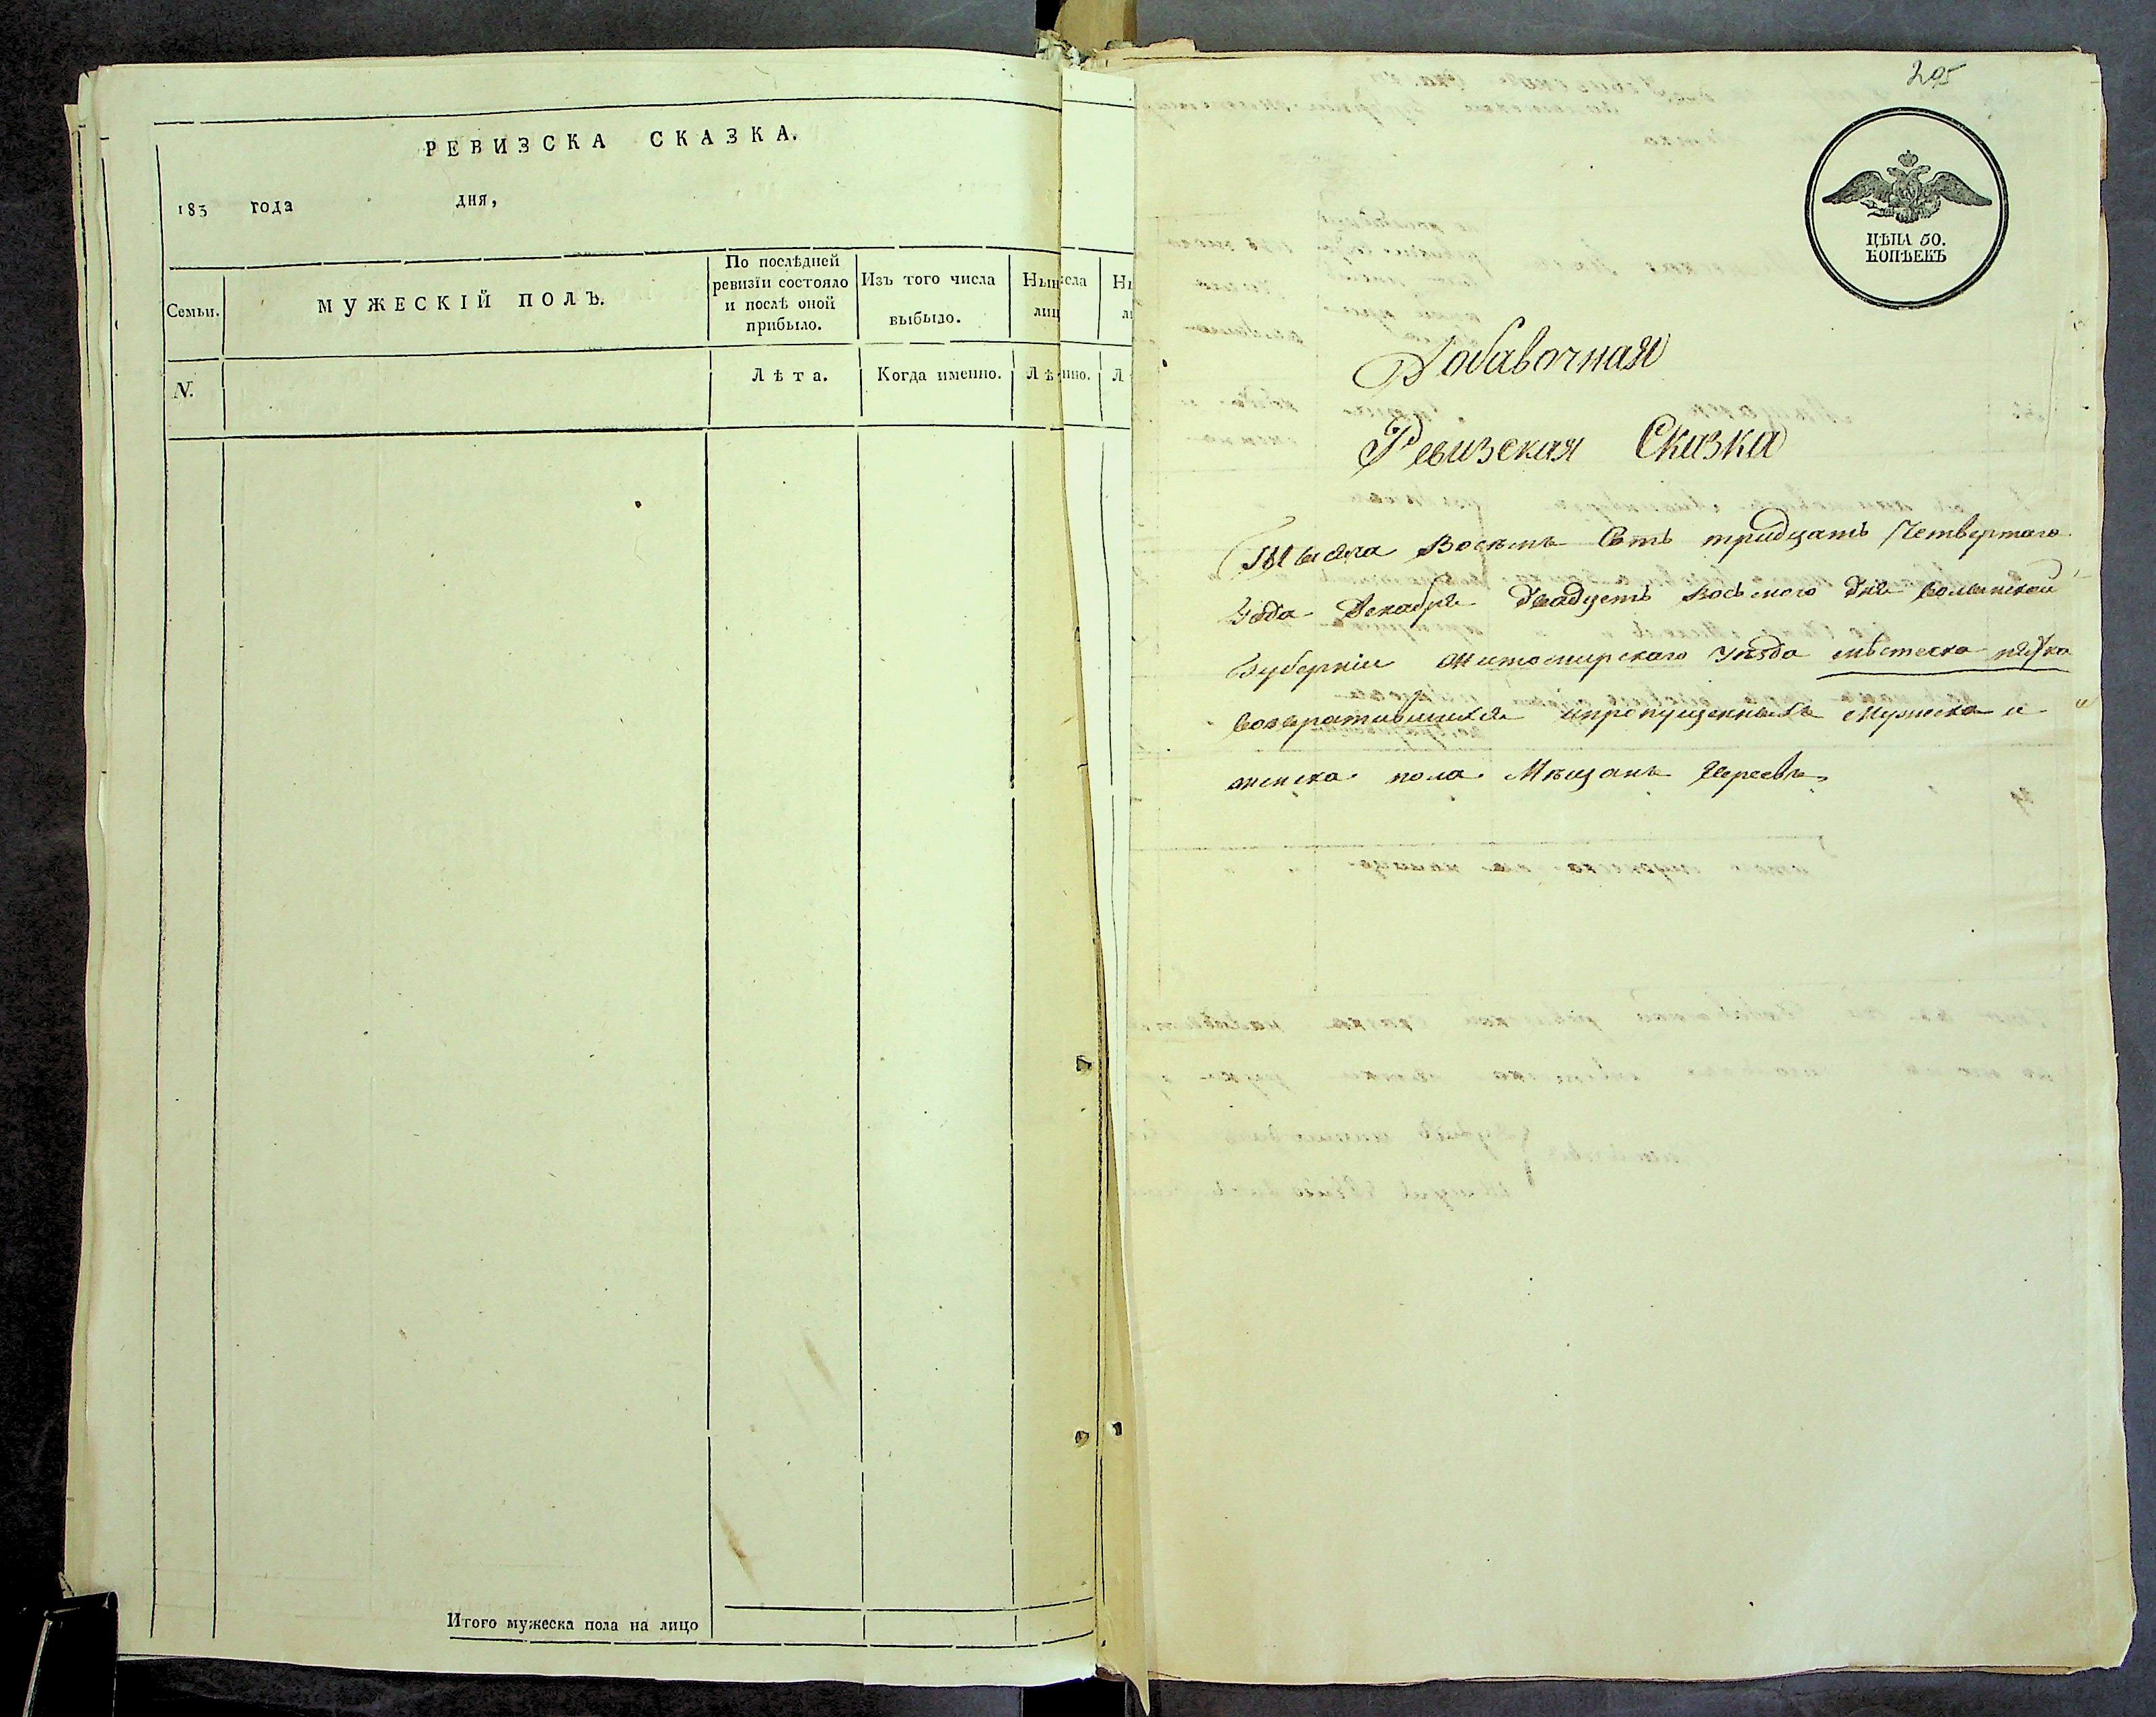 РЕВИЗСКА СКАЗКА.
183 года дня,
Семьи.
МУЖЕСКІЙ ПОЛЪ.
По послѣдней
ревизіи состояло
и послѣ оной
прибыло.
Изъ того числа
выбыло.
N.
Лѣта.
Когда именно.
Итого мужеска пола на лицо
295
ЦѢНА 50.
КОПѢЕКЪ
Добавочная
Ревизская Сказка
Тысяча Восемь Сотъ тридцать Четвертаго
Года Декабря двадцеть Восьмого дня Волынской
Губерніи Житомирскаго Уѣзда мѣстечка пятка
возвратившихся ипропущенныхъ Мужеска и
женска пола Мѣщанъ Евреевъ